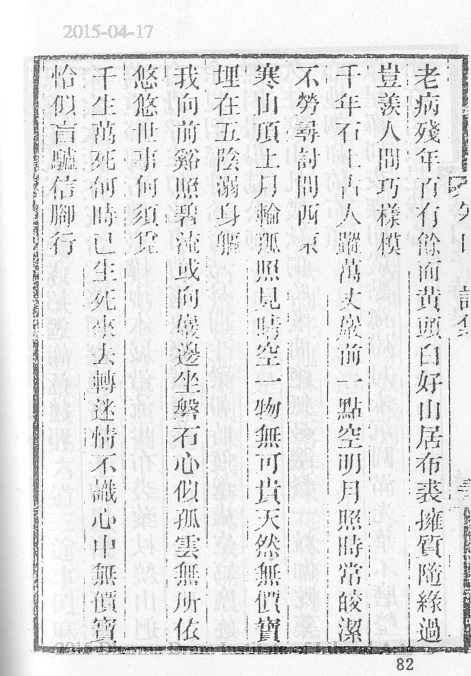 2015-04-17
老病殘年百有餘面黃頭白好山居布裘擁質隨緣過
豈羨人間巧樣模
千年石上古人蹤萬丈巖前一點空明月照時常皎潔
不勞尋討問西東
寒山頂上月輪孤照見晴空一物無可貴天然無價寶
埋在五陰溺身軀
我向前谿照碧流或向巖邊坐磐石心似孤雲無所依
悠悠世事何須覓
千生萬死何時已生死來去轉迷情不識心中無價寶
恰似盲驢信腳行
82